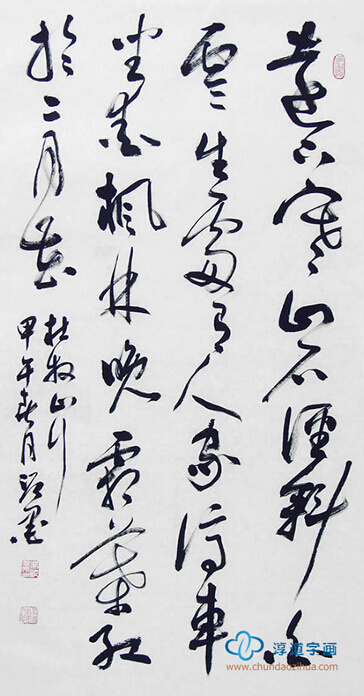 遠上寒山石徑斜白
雲生處有人家停車
坐愛楓林晚霜葉紅
於二月花
杜牧山行
甲午春月
淳道字画
www.chundaozihua.com